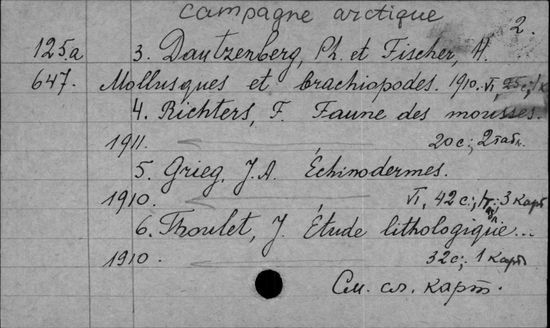 Campagne arctique
2.
125.a 3. Dautzenberg, Ph. et Fischer, H.
647. Mollusques et brachiopodes. 1910. VI, 25 с.,
4. Richters, F. Faune des mousses.
1911. 20 с.; 2 табл.
5. Grieg, J.A. Échinodermes.
1910. VI, 42 с.; 3 карт
6. Thoulet, J. Étude lithologique...
1910. 32 с; 1 карт
См. сл. карт.